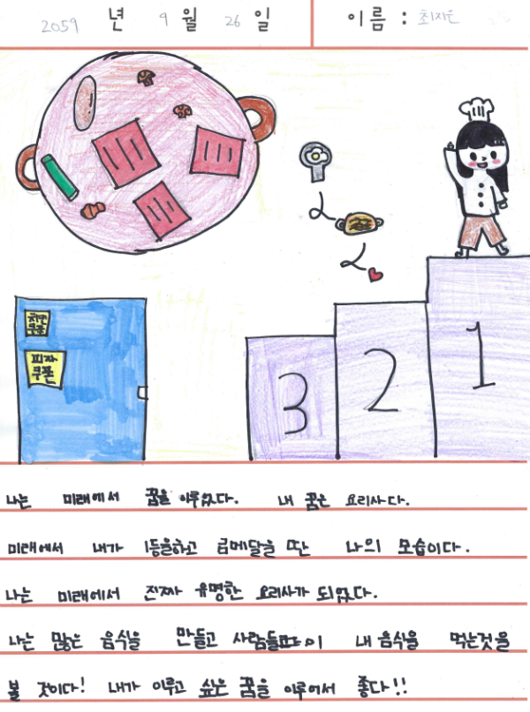 2059 년 9 월 26 일 이름 : 최지은
치킨 쿠폰
피자
쿠폰
3 2 1
나는 미래에서 꿈을 이루었다. 내 꿈은 요리사다.
미래에서 내가 1등을하고 금메달을 딴 나의 모습이다.
나는 미래에서 진짜 유명한 요리사가 되었다.
나는 많은 음식을 만들고 사람들이 내 음식을 먹는것을
볼 것이다! 내가 이루고 싶은 꿈을 이루어서 좋다!!